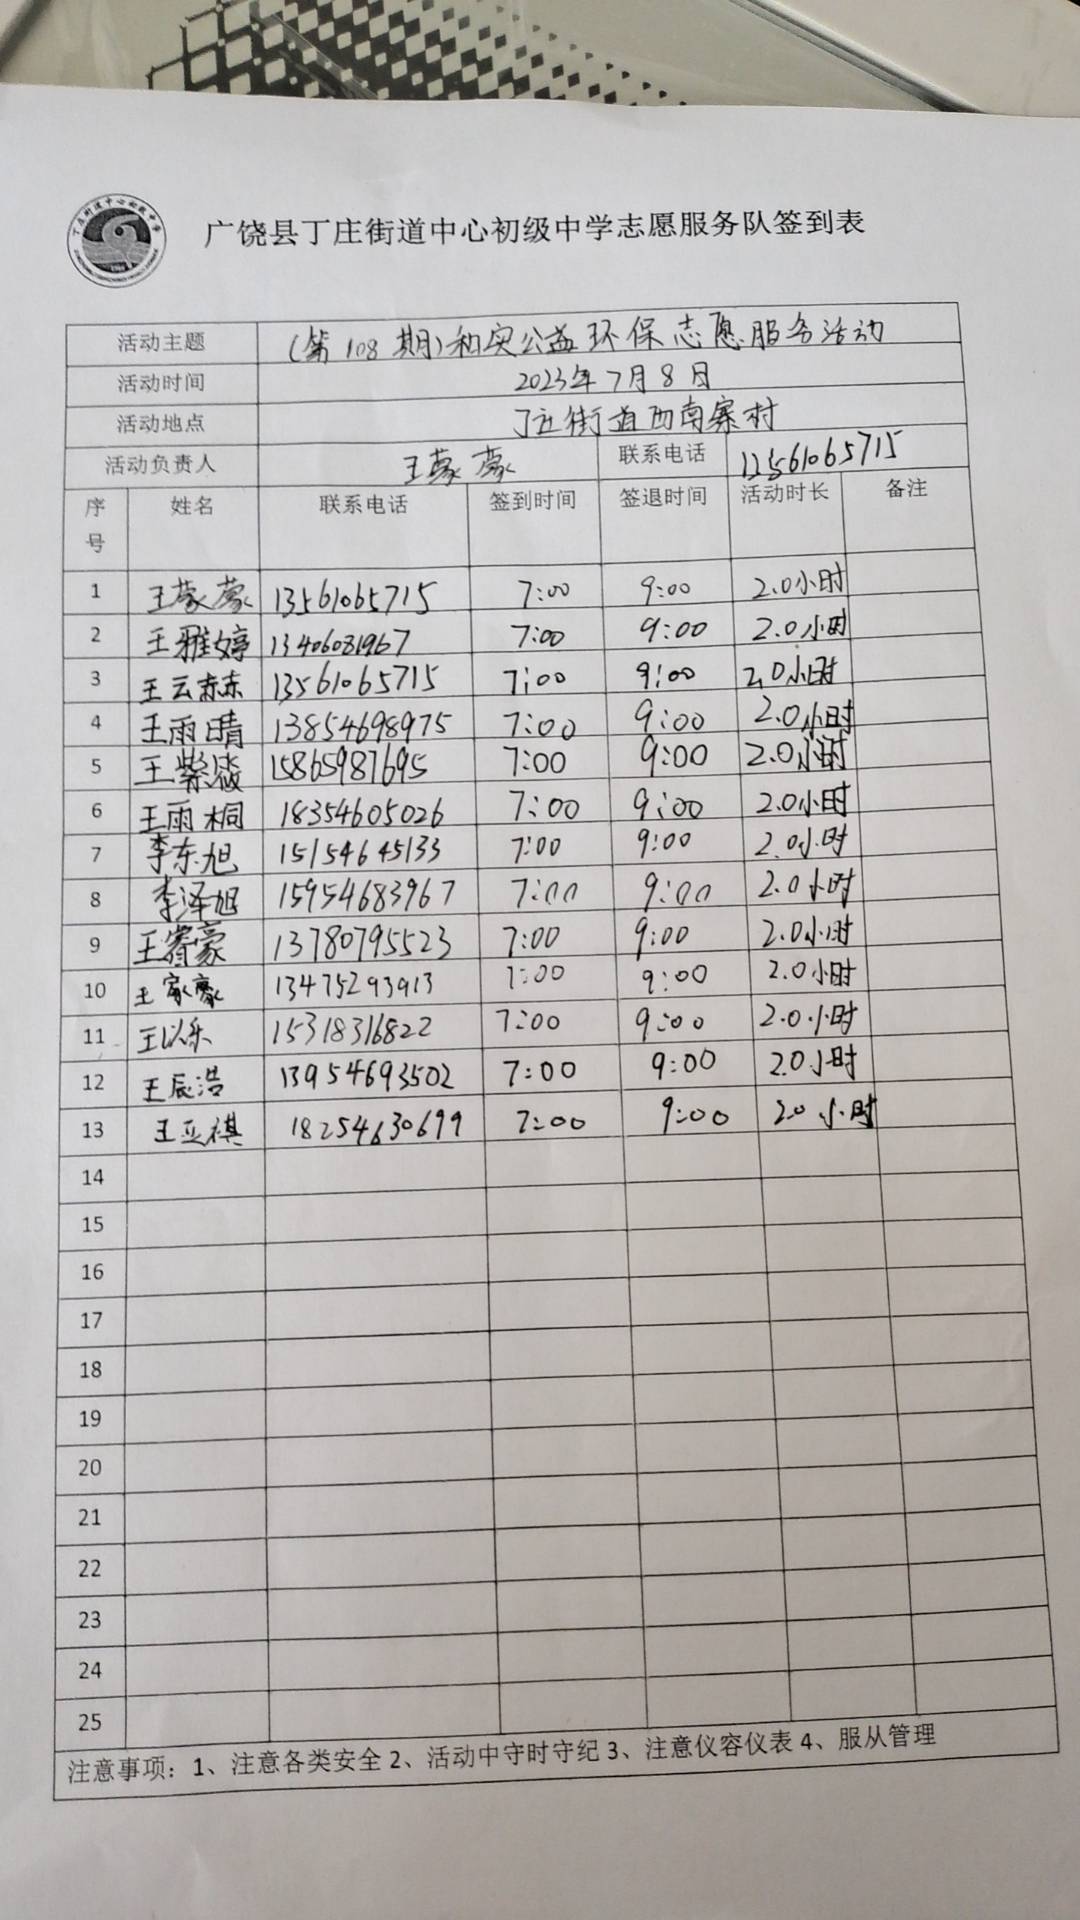 广饶县丁庄街道中心初级中学志愿服务队签到表
活动主题 (第108期)和实公益环保志愿服务活动
活动时间 2023年7月8日
活动地点 丁庄街道西南寨村
活动负责人 王蒙蒙 联系电话 13561065715
序号 姓名 联系电话 签到时间 签退时间 活动时长 备注
1 王蒙蒙 13561065715 7:00 9:00 2.0小时
2 王雅婷 13406081967 7:00 9:00 2.0小时
3 王云赫 13561065715 7:00 9:00 2.0小时
4 王雨晴 13854698975 7:00 9:00 2.0小时
5 王紫 15865987695 7:00 9:00 2.0小时
6 王雨桐 18354605026 7:00 9:00 2.0小时
7 李东旭 15154645133 7:00 9:00 2.0小时
8 李泽旭 15954683967 7:00 9:00 2.0小时
9 王睿豪 13780795523 7:00 9:00 2.0小时
10 王家豪 13475293913 7:00 9:00 2.0小时
11 王以乐 15318316822 7:00 9:00 2.0小时
12 王辰浩 13954693502 7:00 9:00 2.0小时
13 王亚祺 18254630699 7:00 9:00 2.0小时
14
15
16
17
18
19
20
21
22
23
24
25
注意事项：1、注意各类安全 2、活动中守时守纪 3、注意仪容仪表 4、服从管理